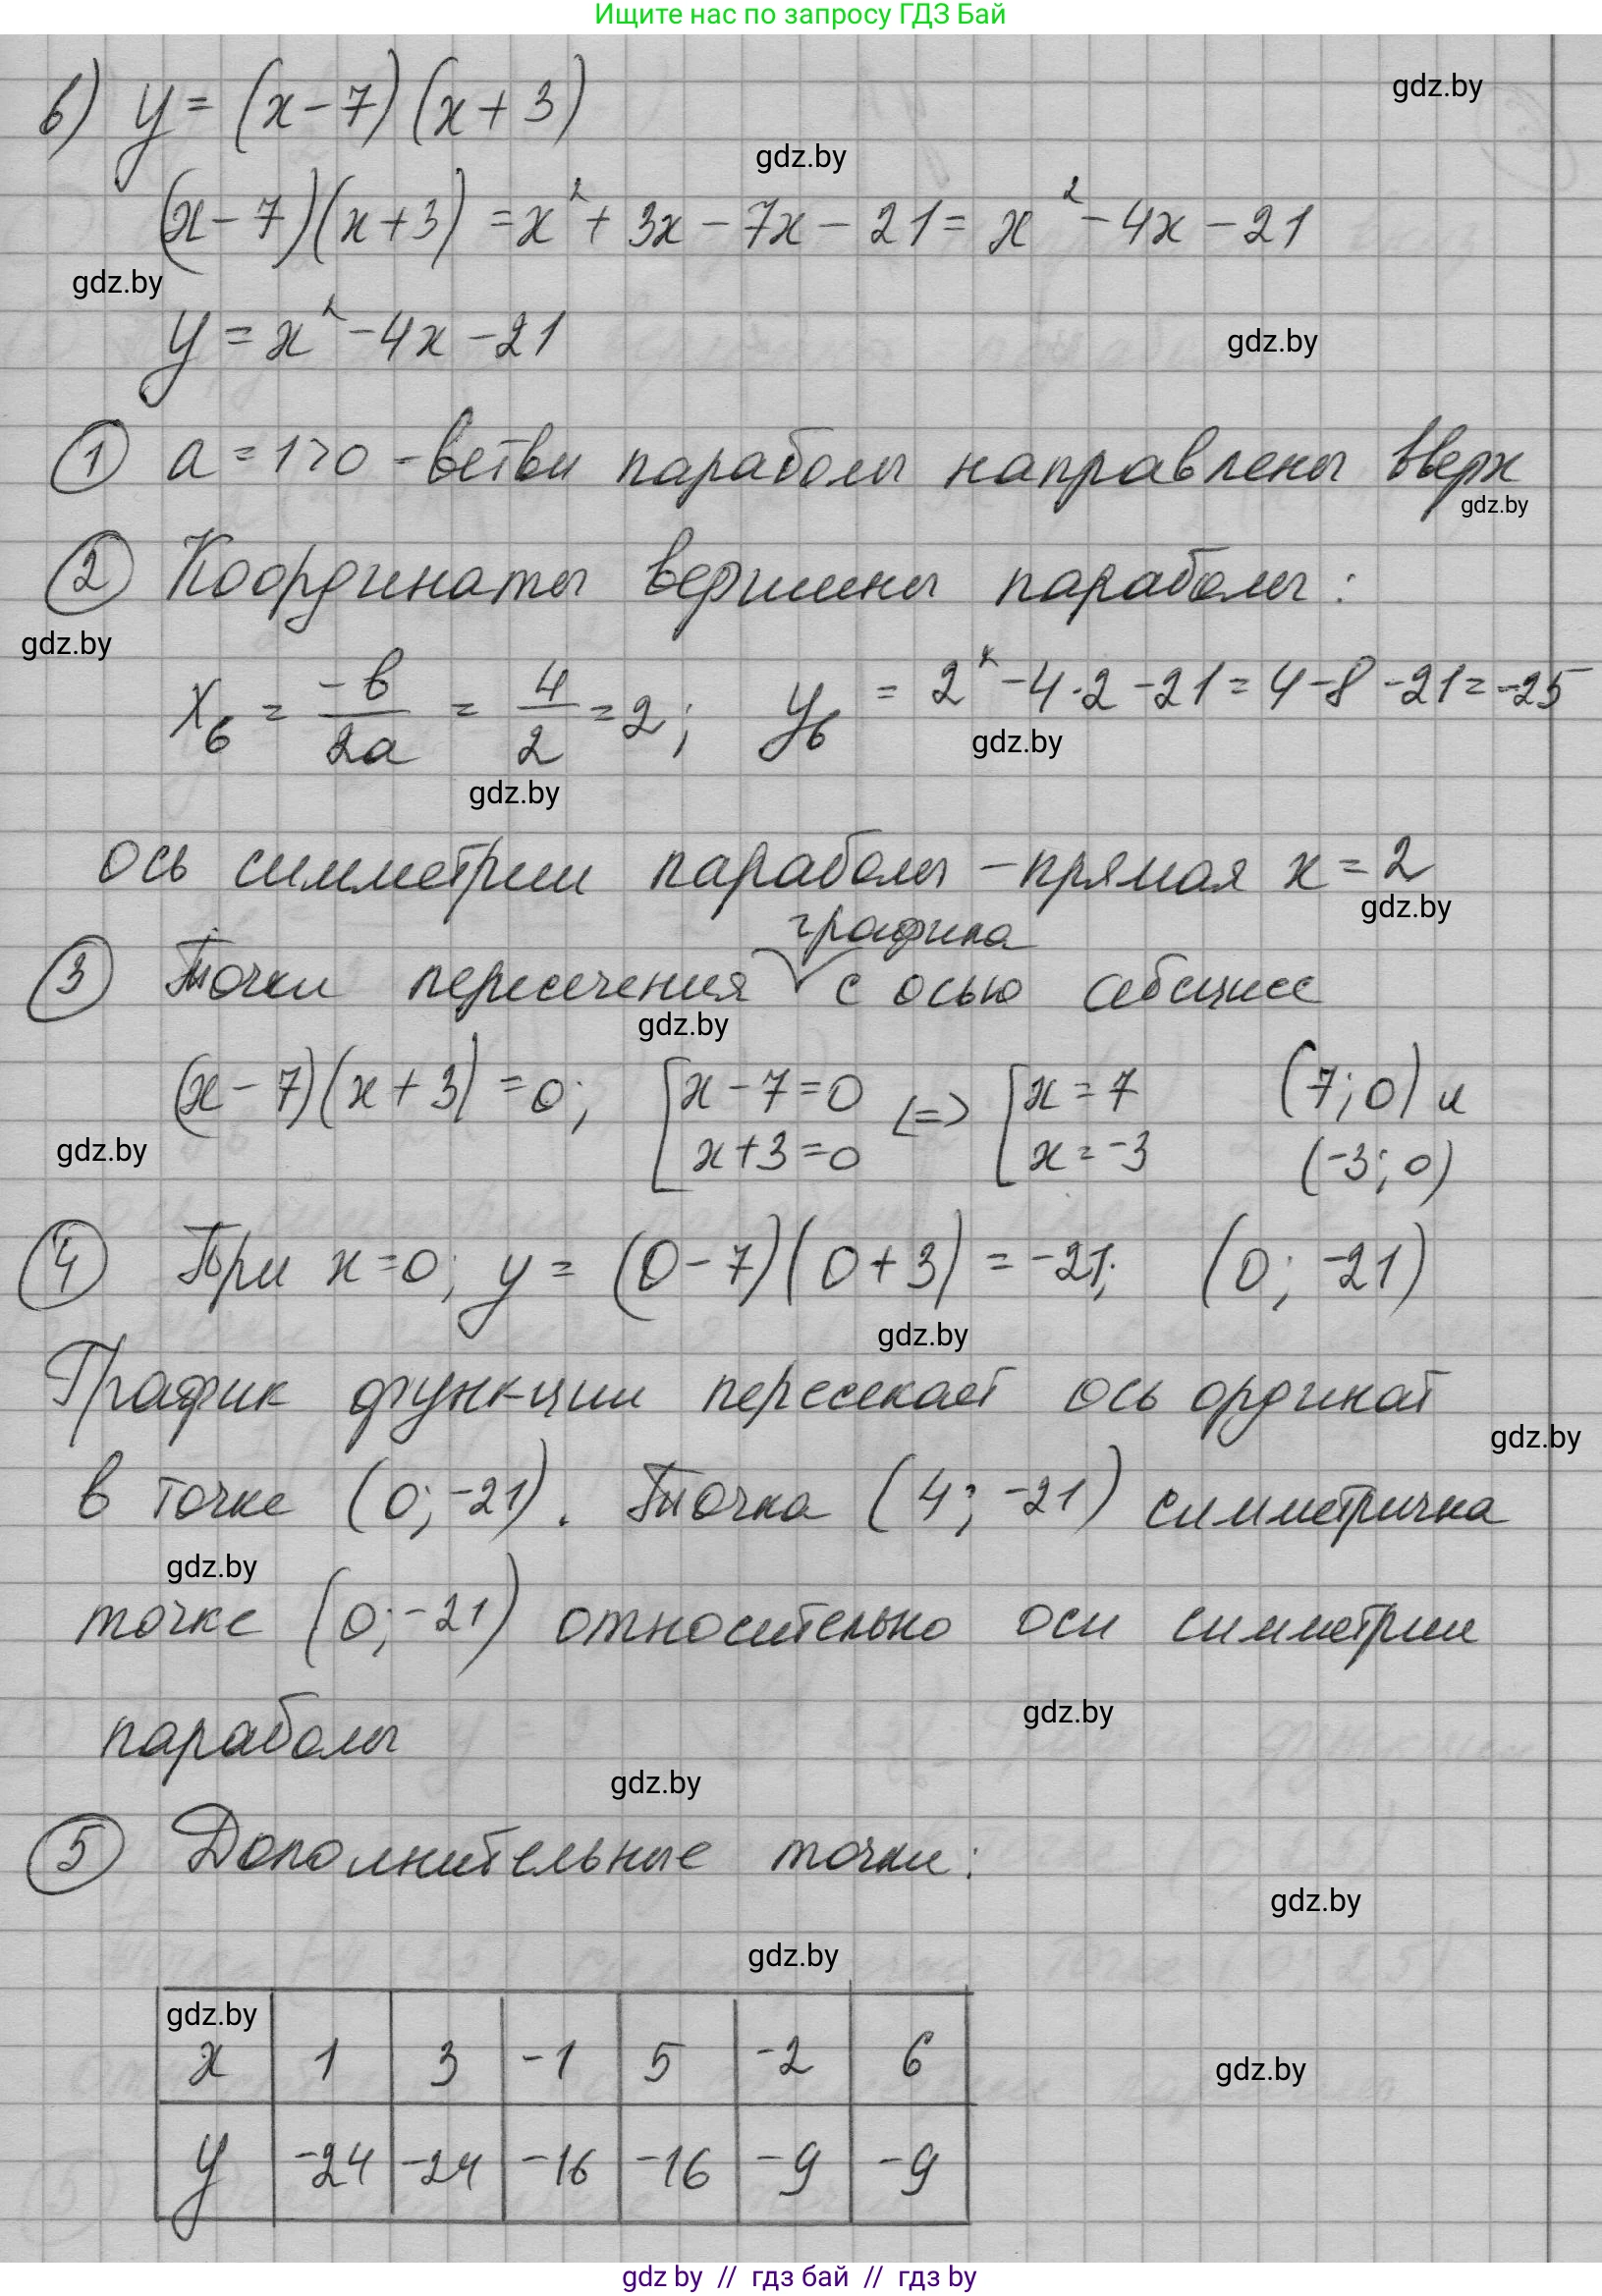 Ищите нас по запросу ГДЗ Бай
в) y = (x - 7)(x + 3)
gdz.by
gdz.by
(x - 7)(x + 3) = x² + 3x - 7x - 21 = x² - 4x - 21
gdz.by
y = x² - 4x - 21
gdz.by
① a = 1 > 0 - ветви параболы направлены вверх
gdz.by
② Координаты вершины параболы:
gdz.by
xв = -b/2a = 4/2 = 2; yв = 2² - 4·2 - 21 = 4 - 8 - 21 = -25
gdz.by
gdz.by
ось симметрии параболы - прямая x = 2
gdz.by
графика
③ Точки пересечения ∨ с осью абсцисс
gdz.by
(x - 7)(x + 3) = 0; [x - 7 = 0 <=> [x = 7 (7; 0) и
x + 3 = 0 x = -3 (-3; 0)
gdz.by
④ При x = 0; y = (0 - 7)(0 + 3) = -21; (0; -21)
gdz.by
График функции пересекает ось ординат
gdz.by
в точке (0; -21). Точка (4; -21) симметрична
gdz.by
точке (0; -21) относительно оси симметрии
gdz.by
параболы
gdz.by
⑤ Дополнительные точки:
gdz.by
gdz.by
gdz.by
x 1 3 -1 5 -2 6
gdz.by
y -24 -24 -16 -16 -9 -9
gdz by // гдз бай // гдз by